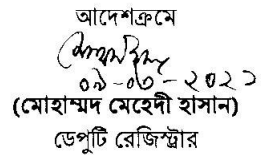 আদেশক্রমে
০৯-০৩-২০২১
(মোহাম্মদ মেহেদী হাসান)
ডেপুটি রেজিস্ট্রার